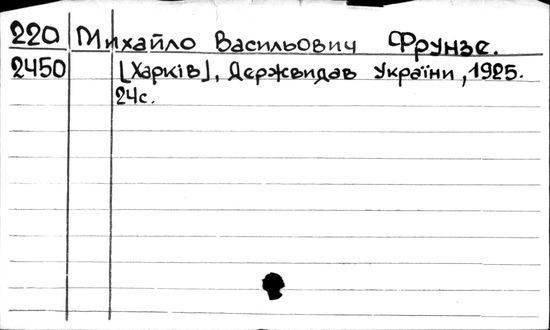 220 Михайло Васильович Фрунзе.
2450 [Харків], Держвидав України, 1925.
24с.